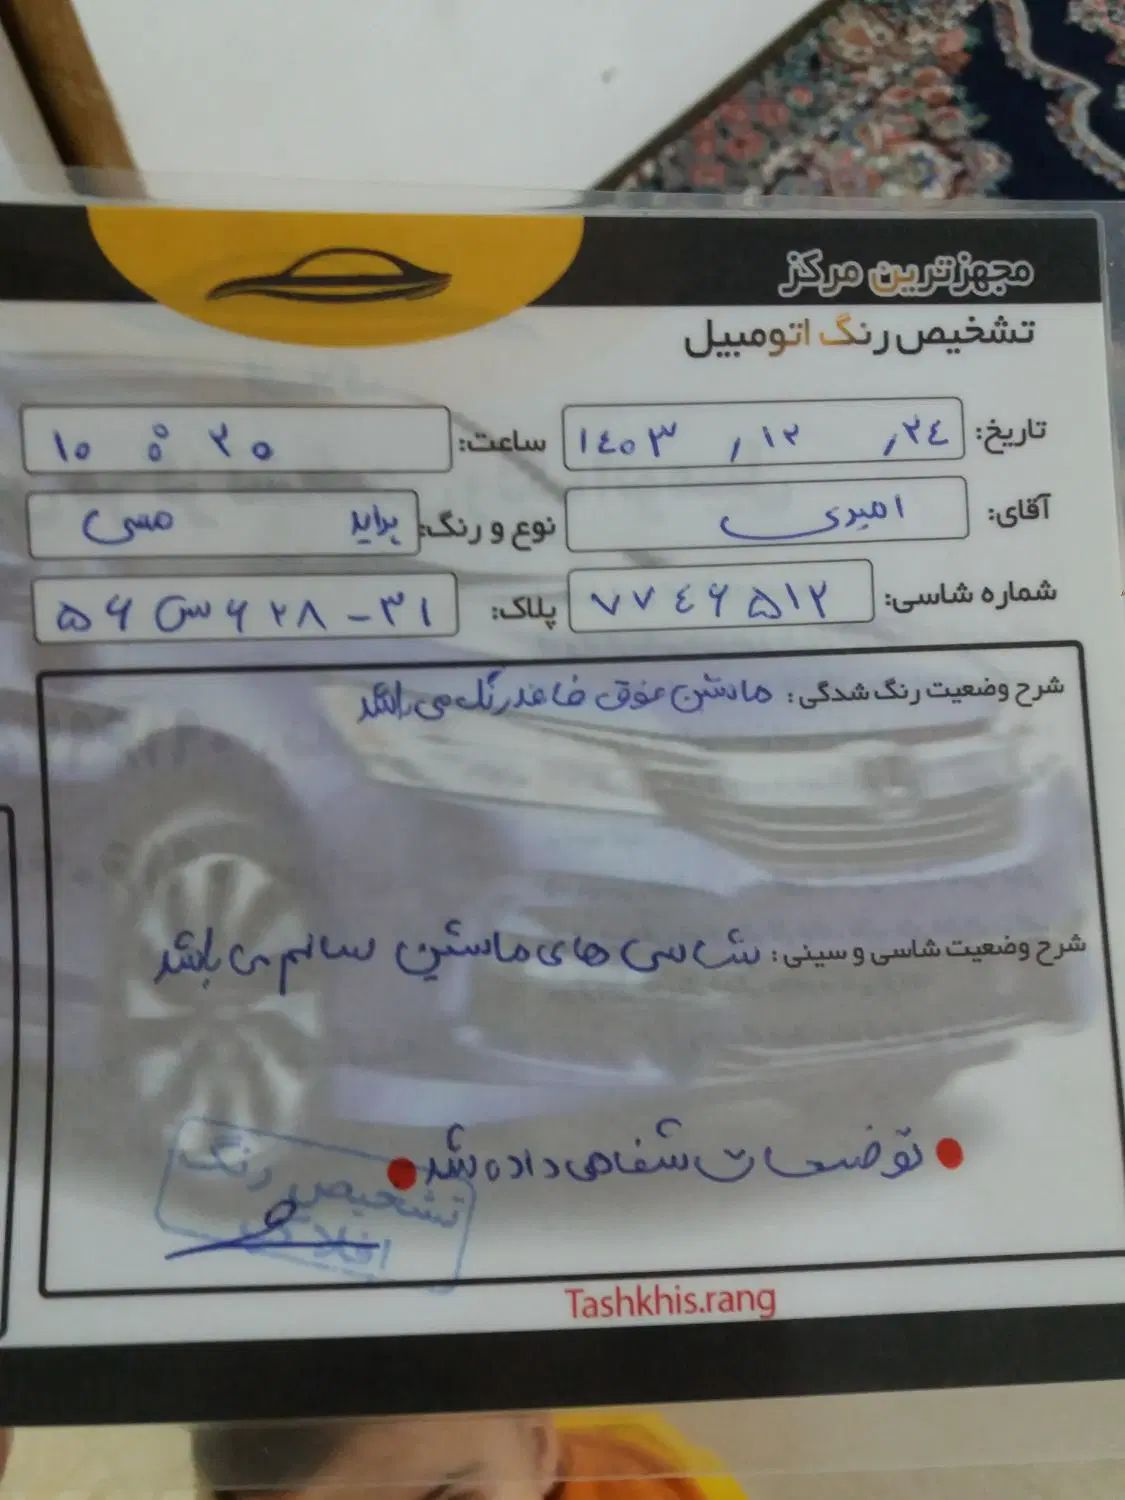 مجهزترین مرکز
تشخیص رنگ اتومبیل
تاریخ: ۱۴۰۳ / ۱۲ / ۲۴ ساعت: ۱۰ : ۲۰
آقای: امیدی نوع و رنگ: پراید مسی
شماره شاسی: ۷۷۴۶۵۱۲ پلاک: ۵۶ س ۶۲۸ - ۳۱
شرح وضعیت رنگ شدگی: ماشین فوق فاقد رنگ می باشد
شرح وضعیت شاسی و سینی: شاسی های ماشین سالم می باشد
توضیحات شفاهی داده شد
تشخیص رنگ
افلاک
Tashkhis.rang